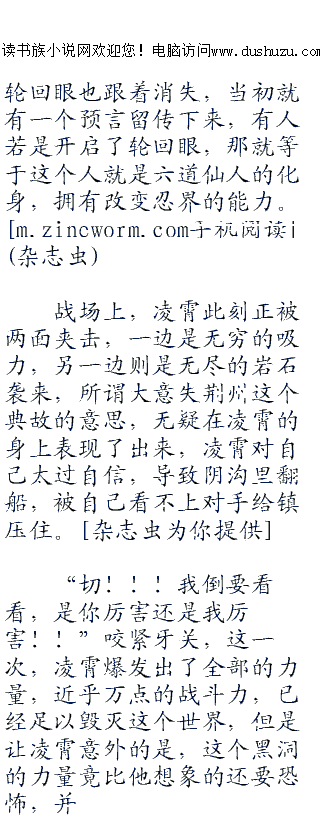 读书族小说网欢迎您！电脑访问www.dushuzu.com
轮回眼也跟着消失，当初就
有一个预言留传下来，有人
若是开启了轮回眼，那就等
于这个人就是六道仙人的化
身，拥有改变忍界的能力。
[m.zincworm.com手机阅读|
(杂志虫)
战场上，凌霄此刻正被
两面夹击，一边是无穷的吸
力，另一边则是无尽的岩石
袭来，所谓大意失荆州这个
典故的意思，无疑在凌霄的
身上表现了出来，凌霄对自
己太过自信，导致阴沟里翻
船，被自己看不上对手给镇
压住。[杂志虫为你提供]
“切！！！我倒要看
看，是你厉害还是我厉
害！！”咬紧牙关，这一
次，凌霄爆发出了全部的力
量，近乎万点的战斗力，已
经足以毁灭这个世界，但是
让凌霄意外的是，这个黑洞
的力量竟比他想象的还要恐
怖，并